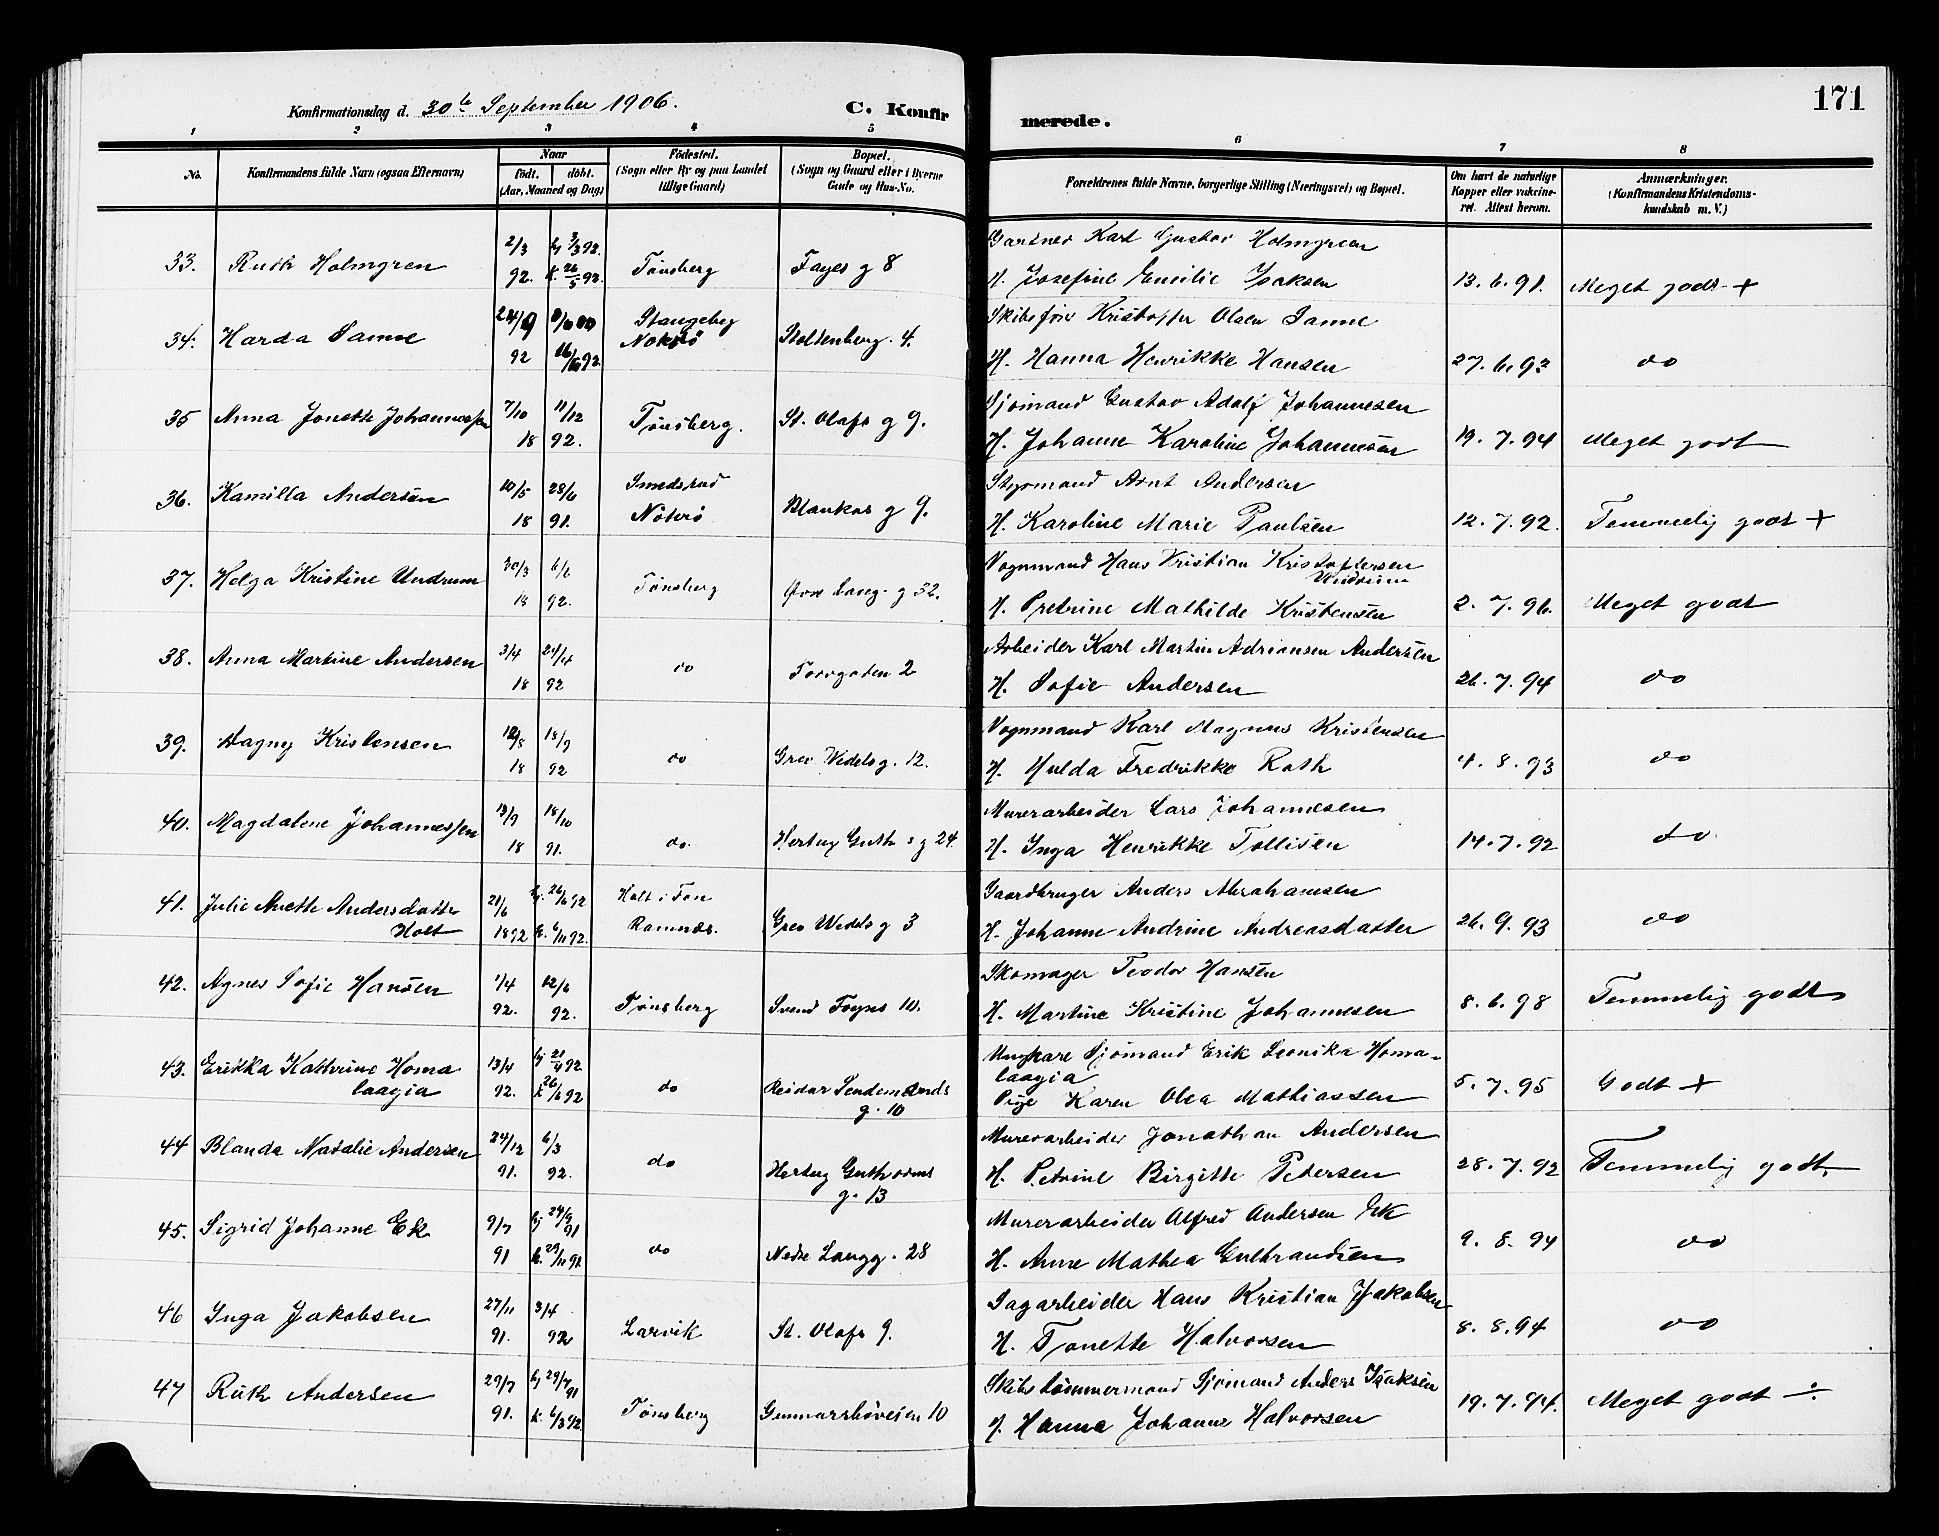 171
Konfirmationsdag d. 30te September 1906. C. Konfirmerede.
1 2 3 4 5 6 7 8
No. Konfirmandens fulde Navn (ogsaa Efternavn) Naar födt. döbt. (Aar, Maaned og Dag) Födested. (Sogn eller By og paa Landet tillige Gaard) Bopæl. (Sogn og Gaard eller i Byerne Gade og Hus-No. Forældrenes fulde Navne, borgerlige Stilling (Næringsvei) og Bopæl. Om havt de naturlige Kopper eller vakcineret. Attest herom. Anmærkninger. (Konfirmandens Kristendomskundskab m. V.)
33. Ruth Holmgren 2/3 92. hj 3/3 92. k. 26/5 92. Tönsberg Foyes g 8 Gartner Karl Gustav Holmgren
H. Josefine Emilie Isaksen 13. 6. 91. Meget godt +
34. Harda Sanne 24/9 92 16/10 92. Stangeby Nøterö Stoltenberg. 4. Skibsfører Kristoffer Olsen Sanne
H. Hanna Henrikke Hansen 27. 6. 93 do
35 Anna Jonette Johannessen 7/10 11/12 18 92. Tönsberg. St. Olafs g 9. Sjömand Gustav Adolf Johannesen
H. Johanne Karoline Johannesen 19. 7. 94 Meget godt
36. Kamilla Andersen 10/5 28/6 18 91. Smedsrud Nöterö Blankes g 9. Styrmand Arnt Andersen
H. Karoline Marie Paulsen 12. 7. 92. Temmelig godt +
37. Helga Kristine Undrum 30/3 6/6 18 92. Tönsberg Övre Lang. g 32. Vognmand Hans Kristian Kristoffersen Undrum
H. Petrine Mathilde Kristensen 2. 7. 96. Meget godt
38. Anna Martine Andersen 3/4 24/4 18 92 do Torvgaten 2 Arbeider Karl Martin Adriansen Andersen
H. Sofie Andersen 26. 7. 94 do
39. Dagny Kristensen 12/8 18/9 18 92 do Grev Wedels g. 12. Vognmand Karl Magnus Kristensen
H. Hulda Fredrikke Rath 4. 8. 93 do
40. Magdalene Johannessen 13/9 18/10 18 91. do. Hertug Guth s g 24 Murerarbeider Lars Johannesen
H. Inga Henrikke Tollisen 14. 7. 92 do
41. Julie Anette Andersdatter Holt 21/6 1892 hj. 26/6 92 k. 6/11 92. Holt i Fon Ramnæs. Grev Wedels g 3 Gaardbruger Anders Abrahamsen
H. Johanne Andrine Andreasdatter 26. 9. 93 do
42. Agnes Sofie Hansen 1/4 92. 12/6 92. Tönsberg Svend Foyns 10. Skomager Teodor Hansen
H. Martine Kristine Johannesen 8. 6. 98 Temmelig godt
43. Erikka Kathrine Homalaagia 13/4 92. hj 21/4 92 k 26/6 92 do Reidar Sendemands g. 10 Ungkare Sjömand Erik Leonika Homalaagia
Pige Karen Olea Mathiassen 5. 7. 95 Godt +
44 Blanda Natalie Andersen 24/12 91. 6/3 92. do Hertug Guthorms g. 13 Murerarbeider Jonathan Andersen
H. Petrine Birgitte Petersen 28. 7. 92 Temmelig godt
45. Sigrid Johanne Ek 9/7 91 hj 24/9 91 k. 29/11 91 do Nedre Langg. 28 Murerarbeider Alfred Andersen Ek
H. Anne Mathea Gulbrandsen 9. 8. 94 do
46 Inga Jakobsen 27/11 91. 3/4 92 Larvik St. Olafs 9. Sagarbeider Hans Kristian Jakobsen
H. Tonette Halvorsen 8. 8. 94 do
47 Ruth Andersen 29/7 91. hj 29/7 91 k. 6/3 92. Tönsberg Gunnarsböveien 10 Skibstömmermand Sjömand Anders Isaksen
H. Hanna Johanne Halvorsen 19. 7. 94. Meget godt ÷